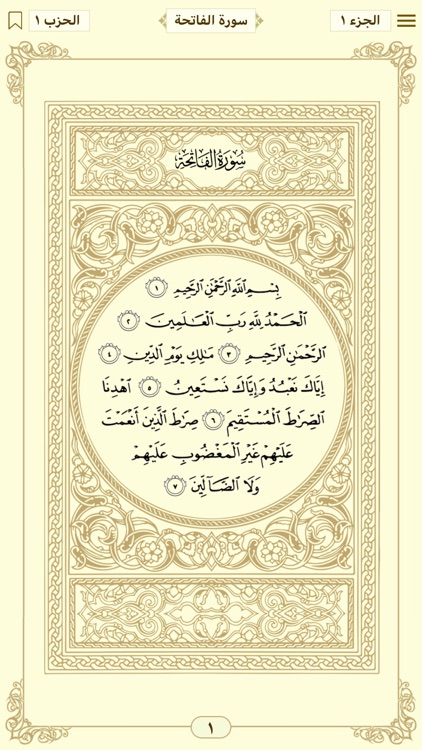 الجزء ١
سورة الفاتحة
الحزب ١
سُورَةُ الْفَاتِحَةِ
بِسْمِ اللَّهِ الرَّحْمَٰنِ الرَّحِيمِ ١
الْحَمْدُ لِلَّهِ رَبِّ الْعَالَمِينَ ٢
الرَّحْمَٰنِ الرَّحِيمِ ٣ مَالِكِ يَوْمِ الدِّينِ ٤
إِيَّاكَ نَعْبُدُ وَإِيَّاكَ نَسْتَعِينُ ٥ اهْدِنَا
الصِّرَاطَ الْمُسْتَقِيمَ ٦ صِرَاطَ الَّذِينَ أَنْعَمْتَ
عَلَيْهِمْ غَيْرِ الْمَغْضُوبِ عَلَيْهِمْ
وَلَا الضَّالِّينَ ٧
١